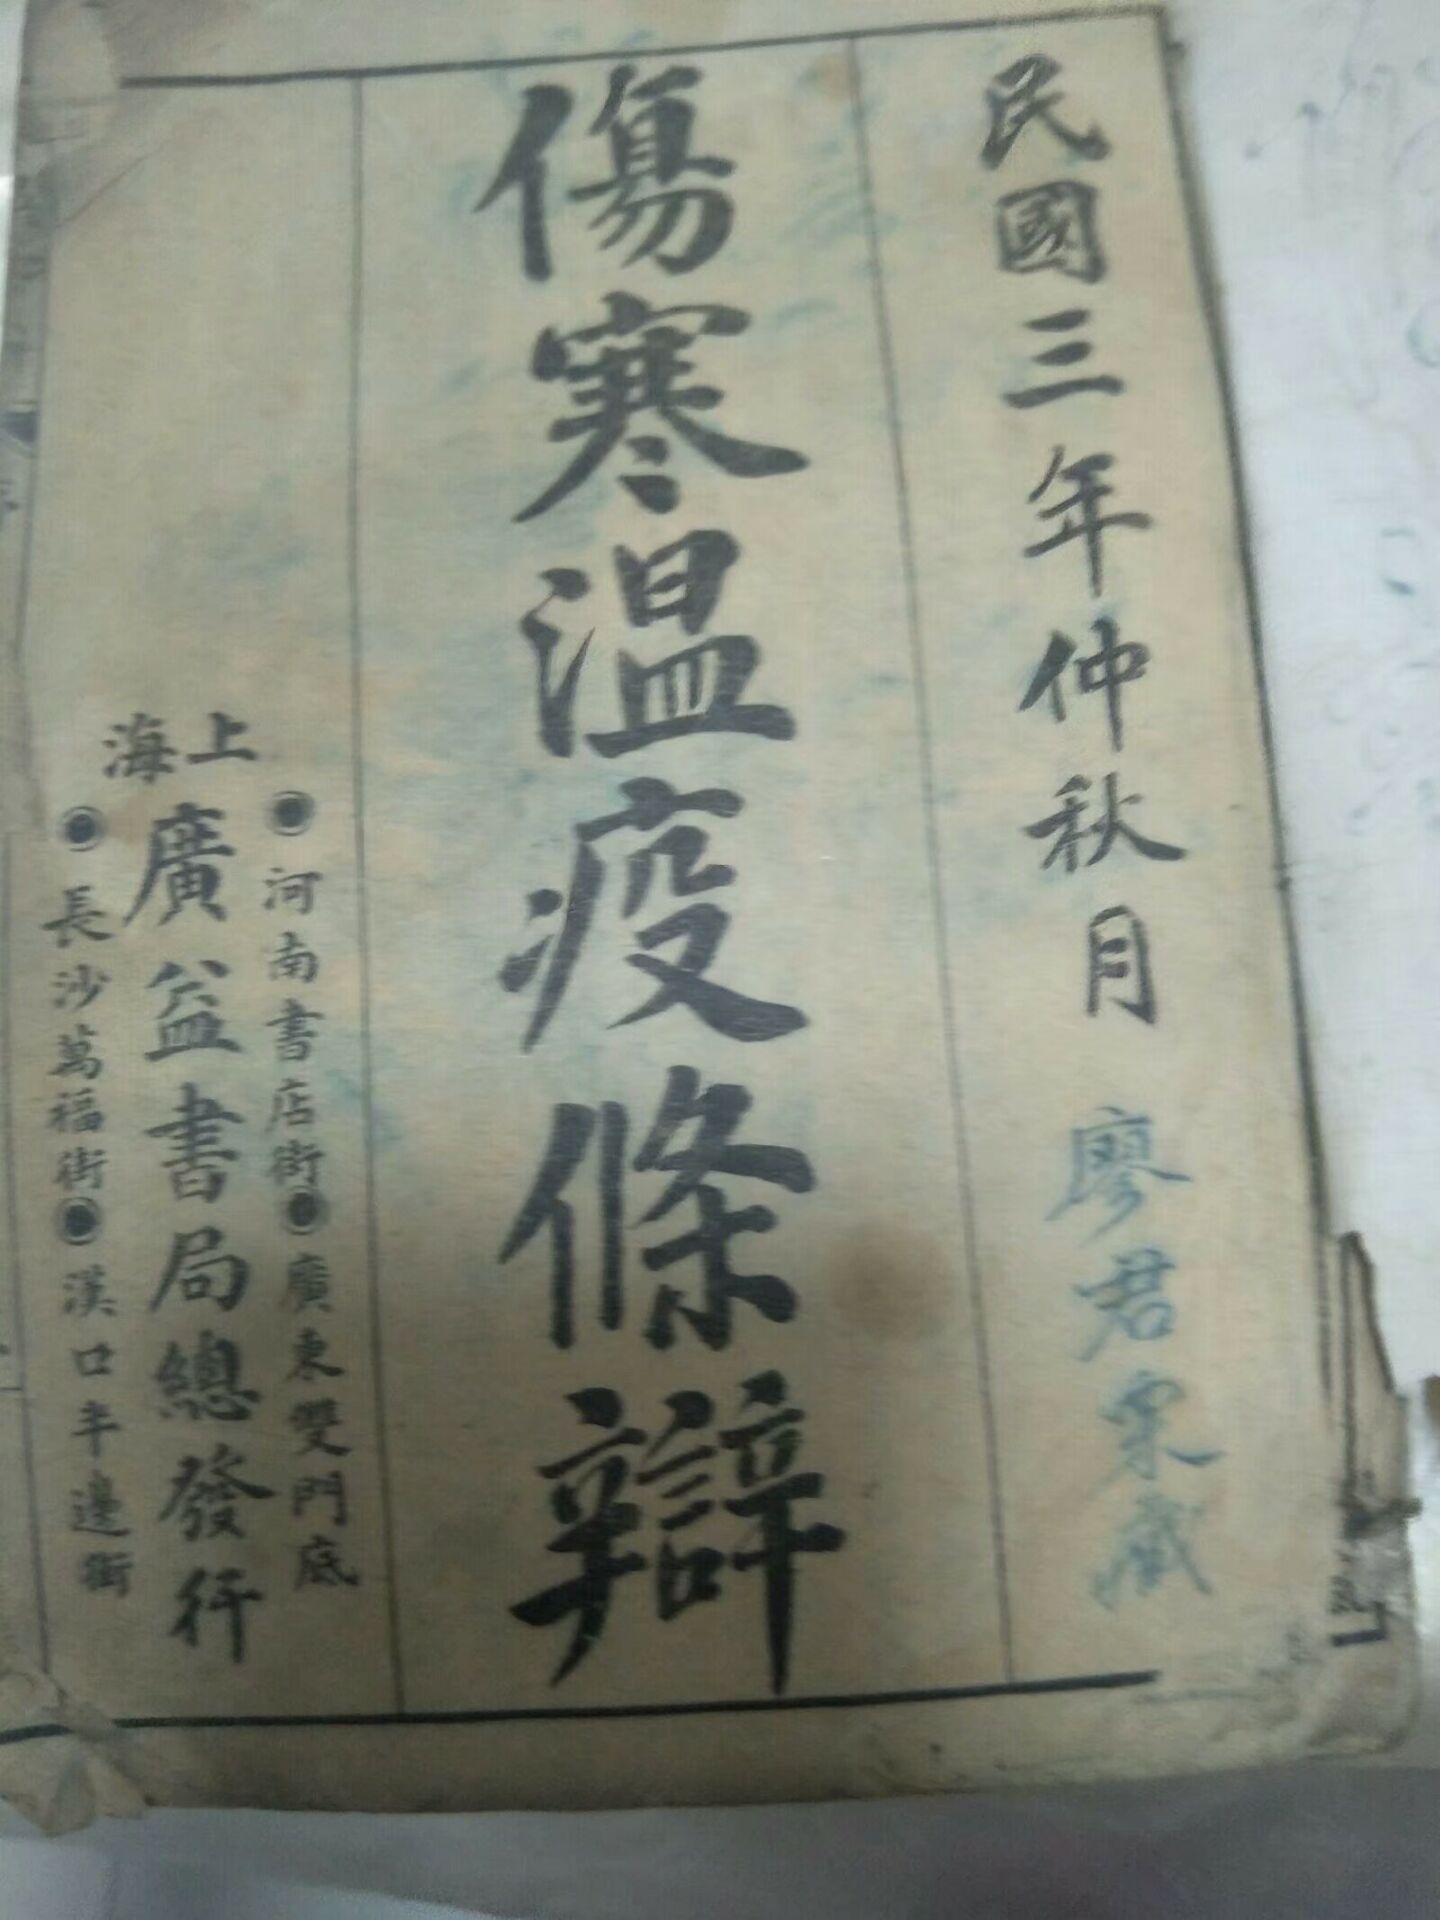 民國三年仲秋月 廖君宋藏
傷寒溫疫條辯
上海
◉河南書店街◉廣東雙門底
廣益書局總發行
◉長沙萬福街◉漢口半邊街